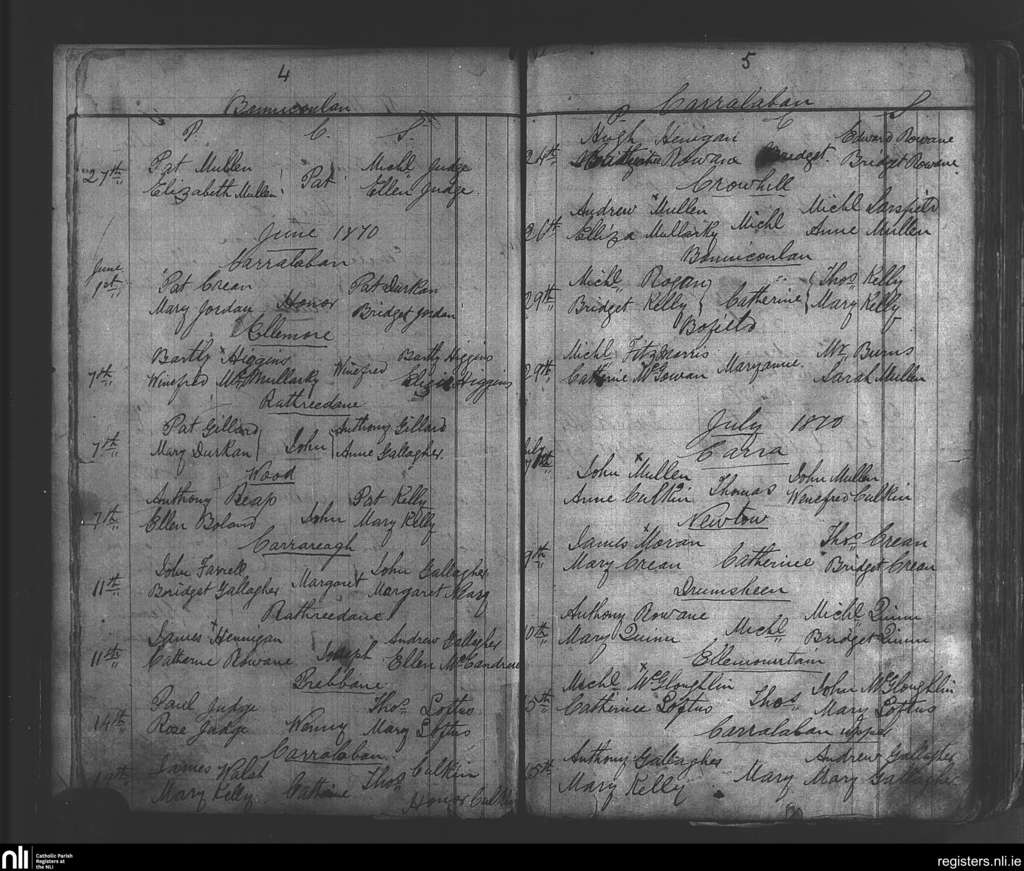 4
Bonniconlan
P. C. S.
27th Pat Mullen Michl Judge
Elizabeth Mullen Pat Ellen Judge
June 1870
Carralaban
June 1st Pat Crean Pat Durkan
Mary Jordan Honor Bridget Jordan
Ellemore
Bartly Higgins Bartly Higgins
7th Winefred Mullarky Winefred Higgins
Rathreedane
Pat Gillard Anthony Gillard
7th Mary Durkan John Anne Gallagher
Wood
Anthony Reap Pat Kelly
7th Ellen Boland John Mary Kelly
Carrareagh
John Farrell John Gallagher
11th Bridget Gallagher Margaret Margaret Mary
Rathreedane
James Hennigan Andrew Gallagher
11th Catherne Rowane Joseph Ellen McAndrew
Trebbane
Paul Judge Thos Loftus
14th Rose Judge Mary Loftus
Carralaban
James Walsh Thos Culkin
Mary Kelly Honor Culkin
5
Carralaban
P. C S
Hugh Henigan Edward Rowane
24th Rowane Bridget Bridget Rowane
Crowhill
Andrew Mullen Michl Sarsfield
26th Elliza Mullarky Michl Anne Mullen
Bonniconlan
Michl Rogan Thos Kelly
29th Bridget Kelly Catherine Mary Kelly
Bofield
Michl Fitzmorris Burns
29th Catherine McGowan Maryanne Sarah Mullen
July 1870
Carra
July John Mullen John Mullen
Anne Culkin Thomas Winefred Culkin
Newtow
James Moran Thos Crean
9th Mary Crean Catherince Bridget Crean
Drumsheen
Anthony Rowane Michl Quinn
10th Mary Quinn Michl Bridget Quinn
Ellemountain
Michl McGloughlin John McGloughlin
15th Catherince Loftus Thos Mary Loftus
Carralaban upper
Anthony Gallagher Andrew Gallagher
15th Mary Kelly Mary Mary Gallagher
nli
Catholic Parish
Registers at
the NLI
registers.nli.ie